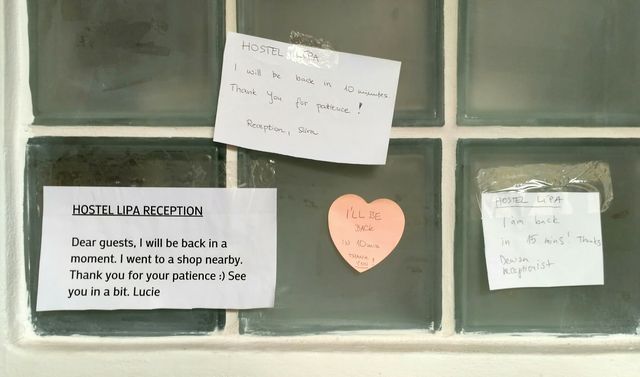 HOSTEL LIPA
I will be back in 10 minutes.
Thank You for patience!
Reception,
HOSTEL LIPA RECEPTION
Dear guests, I will be back in a
moment. I went to a shop nearby.
Thank you for your patience :) See
you in a bit. Lucie
I'LL BE
BACK
IN 10 min
THANK
YOU!
HOSTEL LIPA
I am back
in 15 mins! Thanks
receptionist